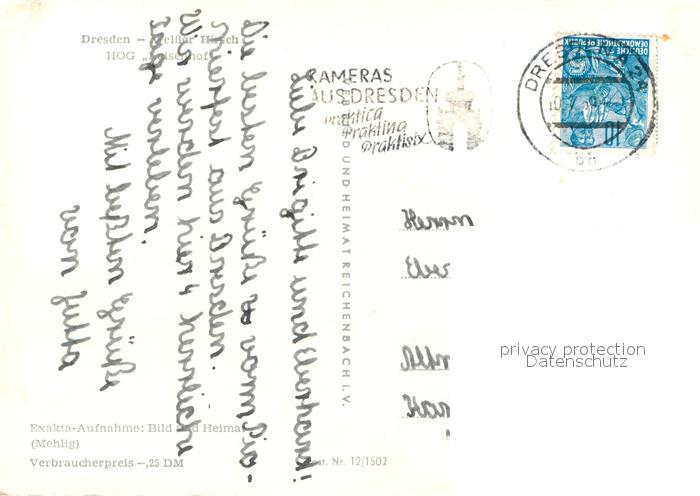 Dresden – Weißer Hirsch
HOG „Luisenhof"
KAMERAS
AUS DRESDEN
Praktica
Praktina
Praktisix
DRESDEN A 24
bb
DEUTSCHE
DEMOKRATISCHE REPUBLIK
10
BILD UND HEIMAT REICHENBACH i. V.
Liebe Brigitte und Eberhard!
Die besten Grüße vom
aus Dresden.
Wir werden hier herrliche
Tage verleben.
Mit besten Grüßen
von Jutta
privacy protection
Datenschutz
Exakta-Aufnahme: Bild und Heimat
(Mehlig)
Verbraucherpreis –,25 DM
Best. Nr. 12/1502